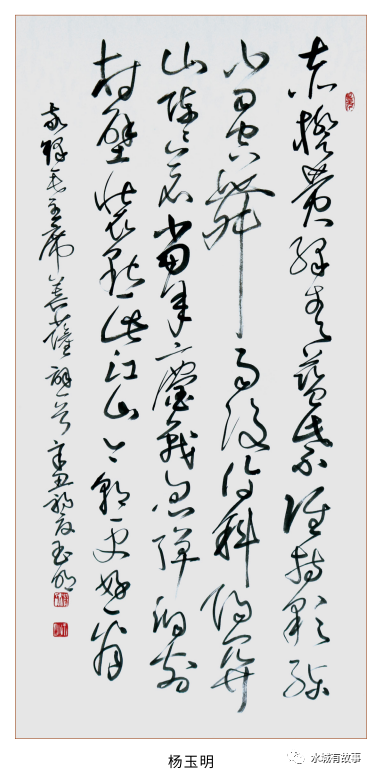 赤橙黄绿青蓝紫谁持彩练
当空舞雨后复斜阳关
山阵阵苍当年鏖战急弹洞前
村壁装点此江山今朝更好看
毛主席菩萨词一首辛丑初夏玉明
杨玉明
水城有故事